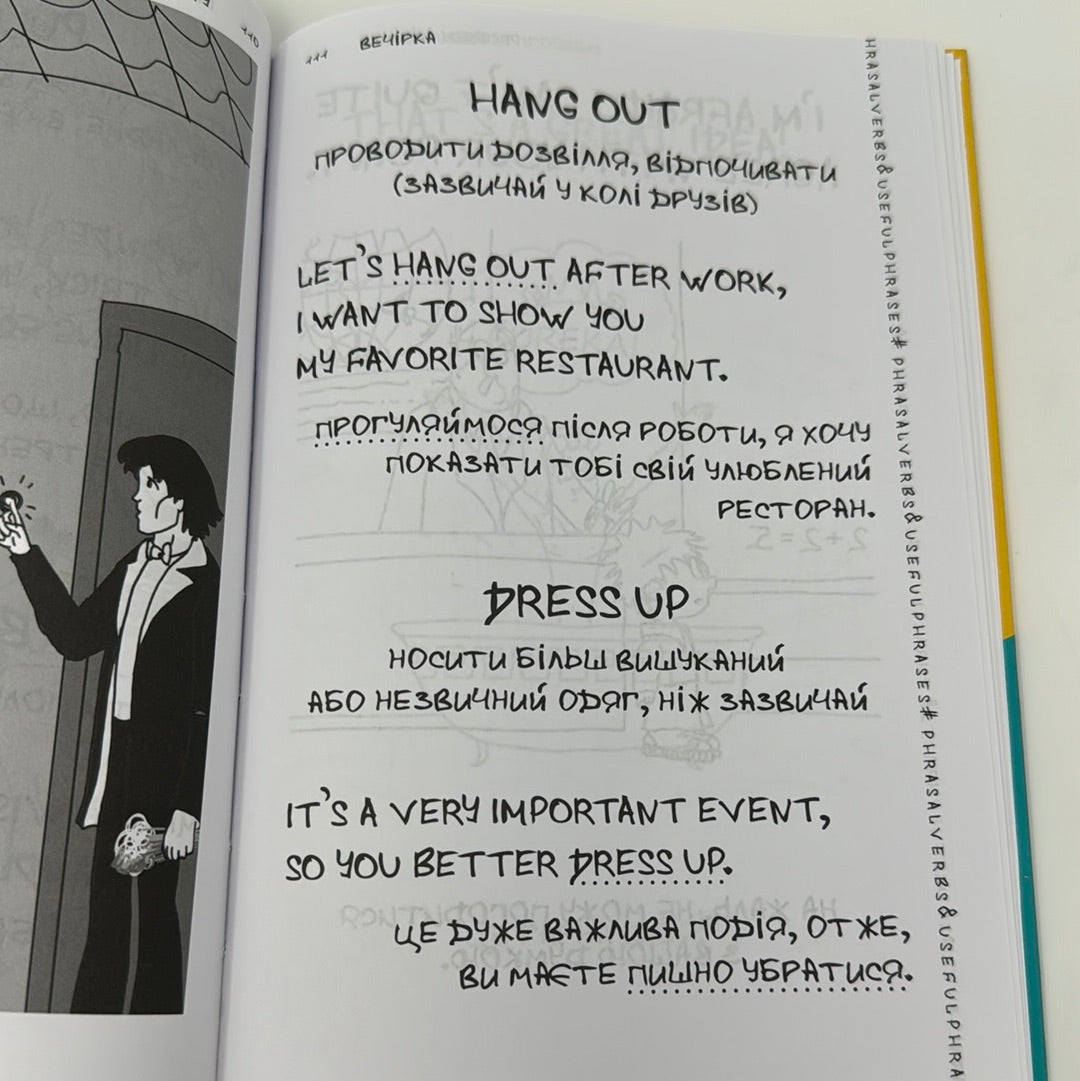 110
111 ВЕЧІРКА
HANG OUT
ПРОВОДИТИ ДОЗВІЛЛЯ, ВІДПОЧИВАТИ
(ЗАЗВИЧАЙ У КОЛІ ДРУЗІВ)
LET'S HANG OUT AFTER WORK,
I WANT TO SHOW YOU
MY FAVORITE RESTAURANT.
ПРОГУЛЯЙМОСЯ ПІСЛЯ РОБОТИ, Я ХОЧУ
ПОКАЗАТИ ТОБІ СВІЙ УЛЮБЛЕНИЙ
РЕСТОРАН.
DRESS UP
НОСИТИ БІЛЬШ ВИШУКАНИЙ
АБО НЕЗВИЧНИЙ ОДЯГ, НІЖ ЗАЗВИЧАЙ
IT'S A VERY IMPORTANT EVENT,
SO YOU BETTER DRESS UP.
ЦЕ ДУЖЕ ВАЖЛИВА ПОДІЯ, ОТЖЕ,
ВИ МАЄТЕ ПИШНО УБРАТИСЯ.
HRASALVERBS&USEFULPHRASES# PHRASALVERBS&USEFULPHRASES# PHRASALVERBS&USEFULPHRA